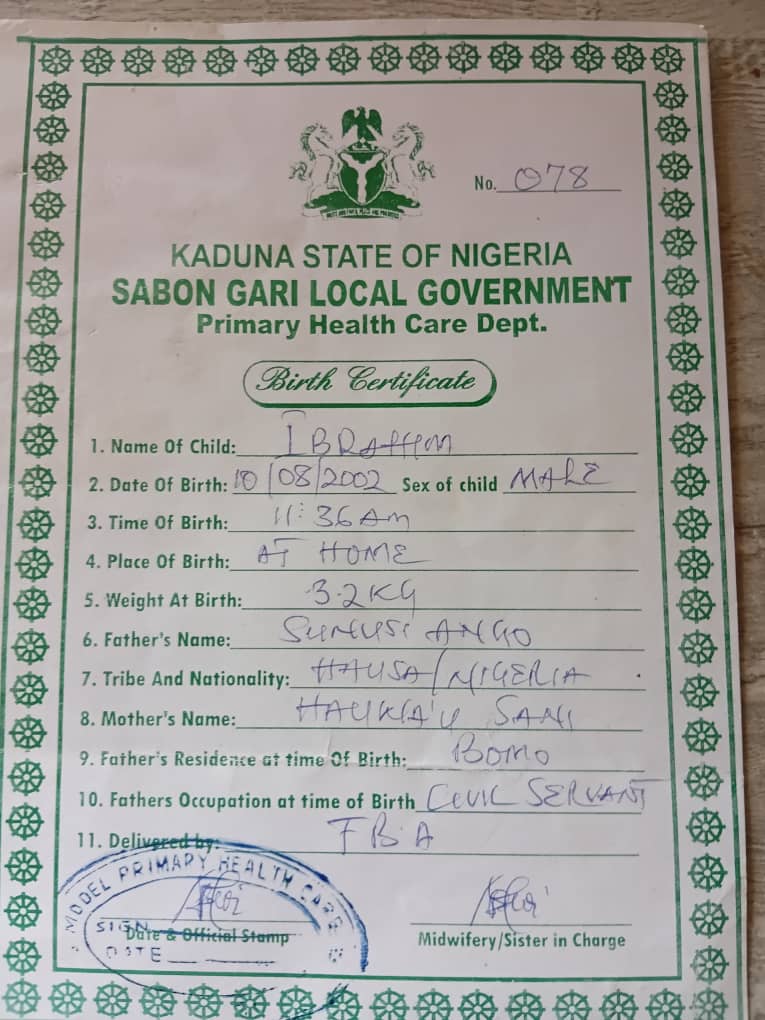 No. 078
KADUNA STATE OF NIGERIA
SABON GARI LOCAL GOVERNMENT
Primary Health Care Dept.
Birth Certificate
1. Name Of Child: IBRAHIM
2. Date Of Birth: 10/08/2002 Sex of child MALE
3. Time Of Birth: 11:36 AM
4. Place Of Birth: AT HOME
5. Weight At Birth: 3.2KG
6. Father's Name: SUNUSI ANGO
7. Tribe And Nationality: HAUSA/NIGERIA
8. Mother's Name: HAUWA'U SANI
9. Father's Residence at time Of Birth: BOMO
10. Fathers Occupation at time of Birth CIVIL SERVANT
11. Delivered by: T.B.A
MODEL PRIMARY HEALTH CARE
SIGN
Date & Official Stamp
DATE
Midwifery/Sister in Charge